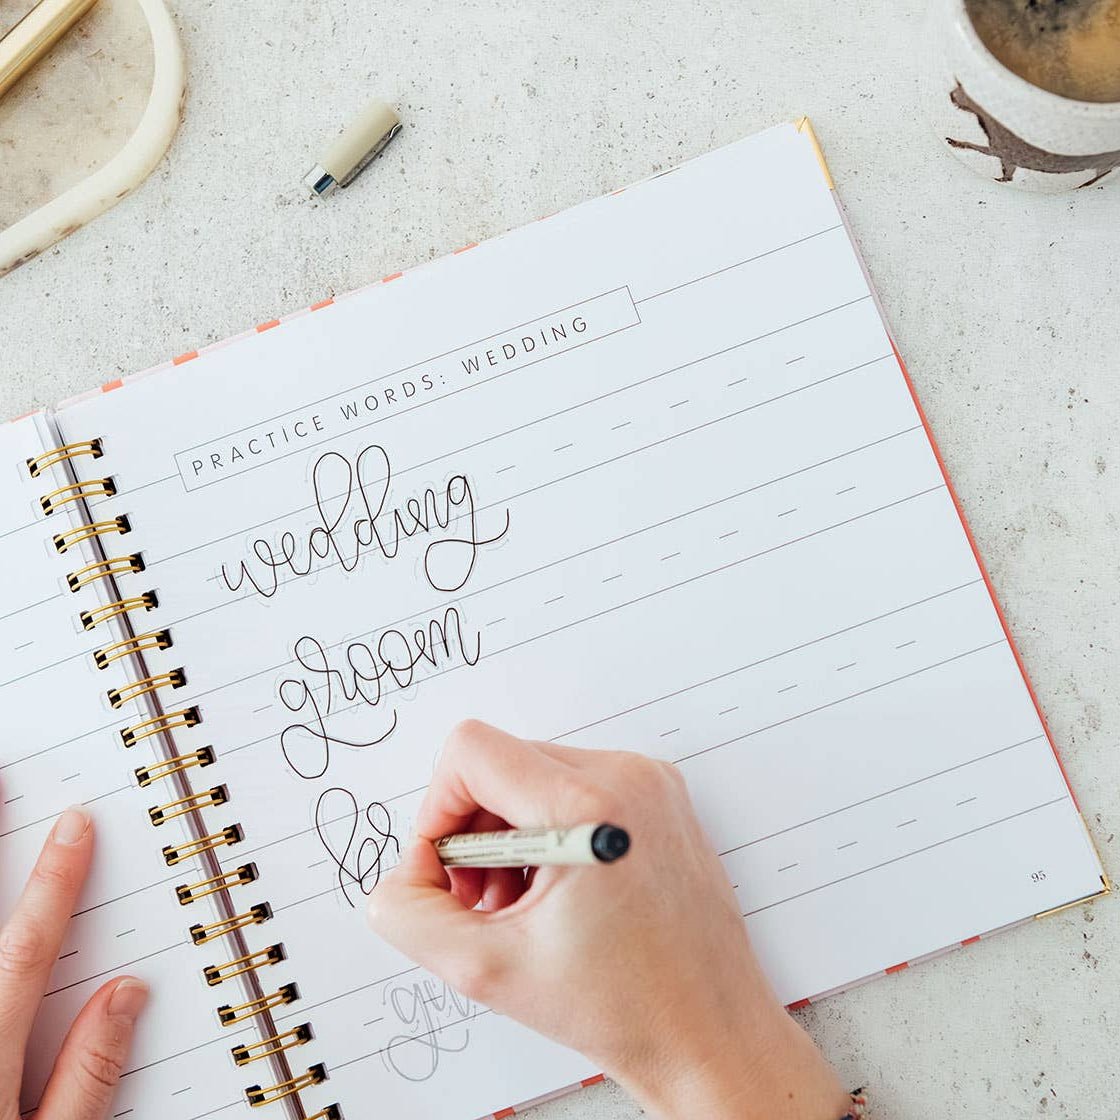 PRACTICE WORDS: WEDDING
wedding
groom
br
gu
95